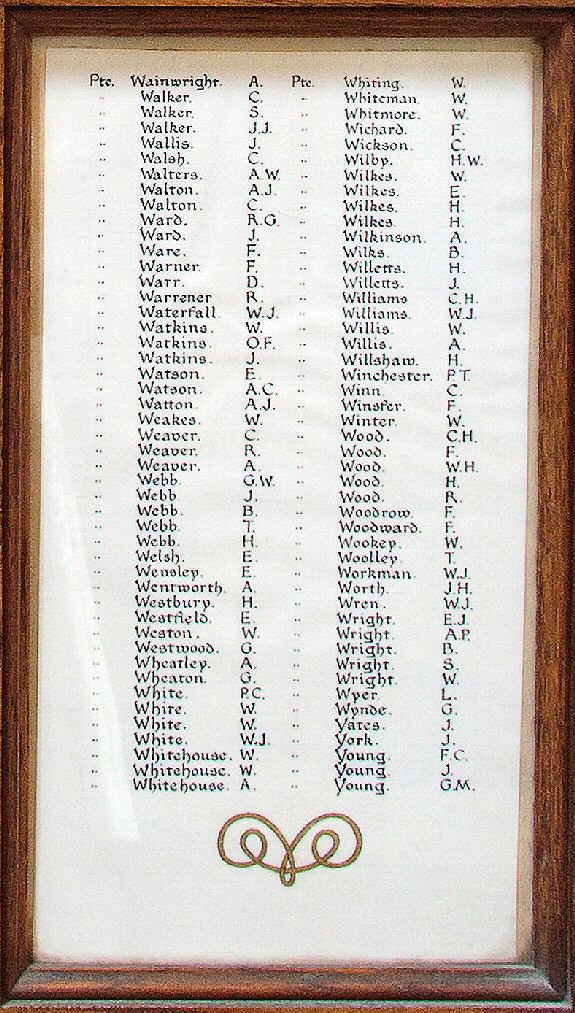 Pte. Wainwright. A.
" Walker. C.
" Walker. S.
" Walker. J.J.
" Wallis. J.
" Walsh. C.
" Walters. A.W.
" Walton. A.J.
" Walton. C.
" Ward. R.G.
" Ward. J.
" Ware. F.
" Warner. F.
" Warr. D.
" Warrener R.
" Waterfall. W.J.
" Watkins. W.
" Watkins. O.F.
" Watkins. J.
" Watson. E.
" Watson. A.C.
" Watton. A.J.
" Weakes. W.
" Weaver. C.
" Weaver. R.
" Weaver. A.
" Webb. G.W.
" Webb. J.
" Webb. B.
" Webb. T.
" Webb. H.
" Welsh. E.
" Wensley. E.
" Wentworth. A.
" Westbury. H.
" Westfield. E.
" Weston. W.
" Westwood. G.
" Wheatley. A.
" Wheaton. G.
" White. P.C.
" White. W.
" White. W.
" White. W.J.
" Whitehouse. W.
" Whitehouse. W.
" Whitehouse. A.
Pte. Whiting. W.
" Whiteman. W.
" Whitmore. W.
" Wichard. F.
" Wickson. C.
" Wilby. H.W.
" Wilkes. W.
" Wilkes. E.
" Wilkes. H.
" Wilkes. H.
" Wilkinson. A.
" Wilks. B.
" Willetts. H.
" Willetts. J.
" Williams C.H.
" Williams. W.J.
" Willis. W.
" Willis. A.
" Willshaw. H.
" Winchester. P.T.
" Winn. C.
" Winsfer. F.
" Winter. W.
" Wood. C.H.
" Wood. F.
" Wood. W.H.
" Wood. H.
" Wood. R.
" Woodrow. F.
" Woodward. F.
" Wookey. W.
" Woolley. T.
" Workman. W.J.
" Worth. J.H.
" Wren. W.J.
" Wright. E.J.
" Wright. A.P.
" Wright. B.
" Wright. S.
" Wright. W.
" Wyer. L.
" Wynde. G.
" Yates. J.
" York. J.
" Young. F.C.
" Young. J.
" Young. G.M.